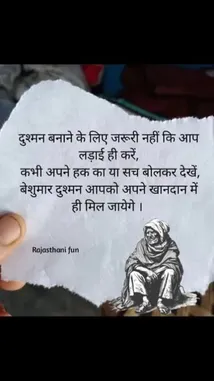 दुश्मन बनाने के लिए जरूरी नहीं कि आप
लड़ाई ही करें,
कभी अपने हक का या सच बोलकर देखें,
बेशुमार दुश्मन आपको अपने खानदान में
ही मिल जायेगे ।
Rajasthani fun